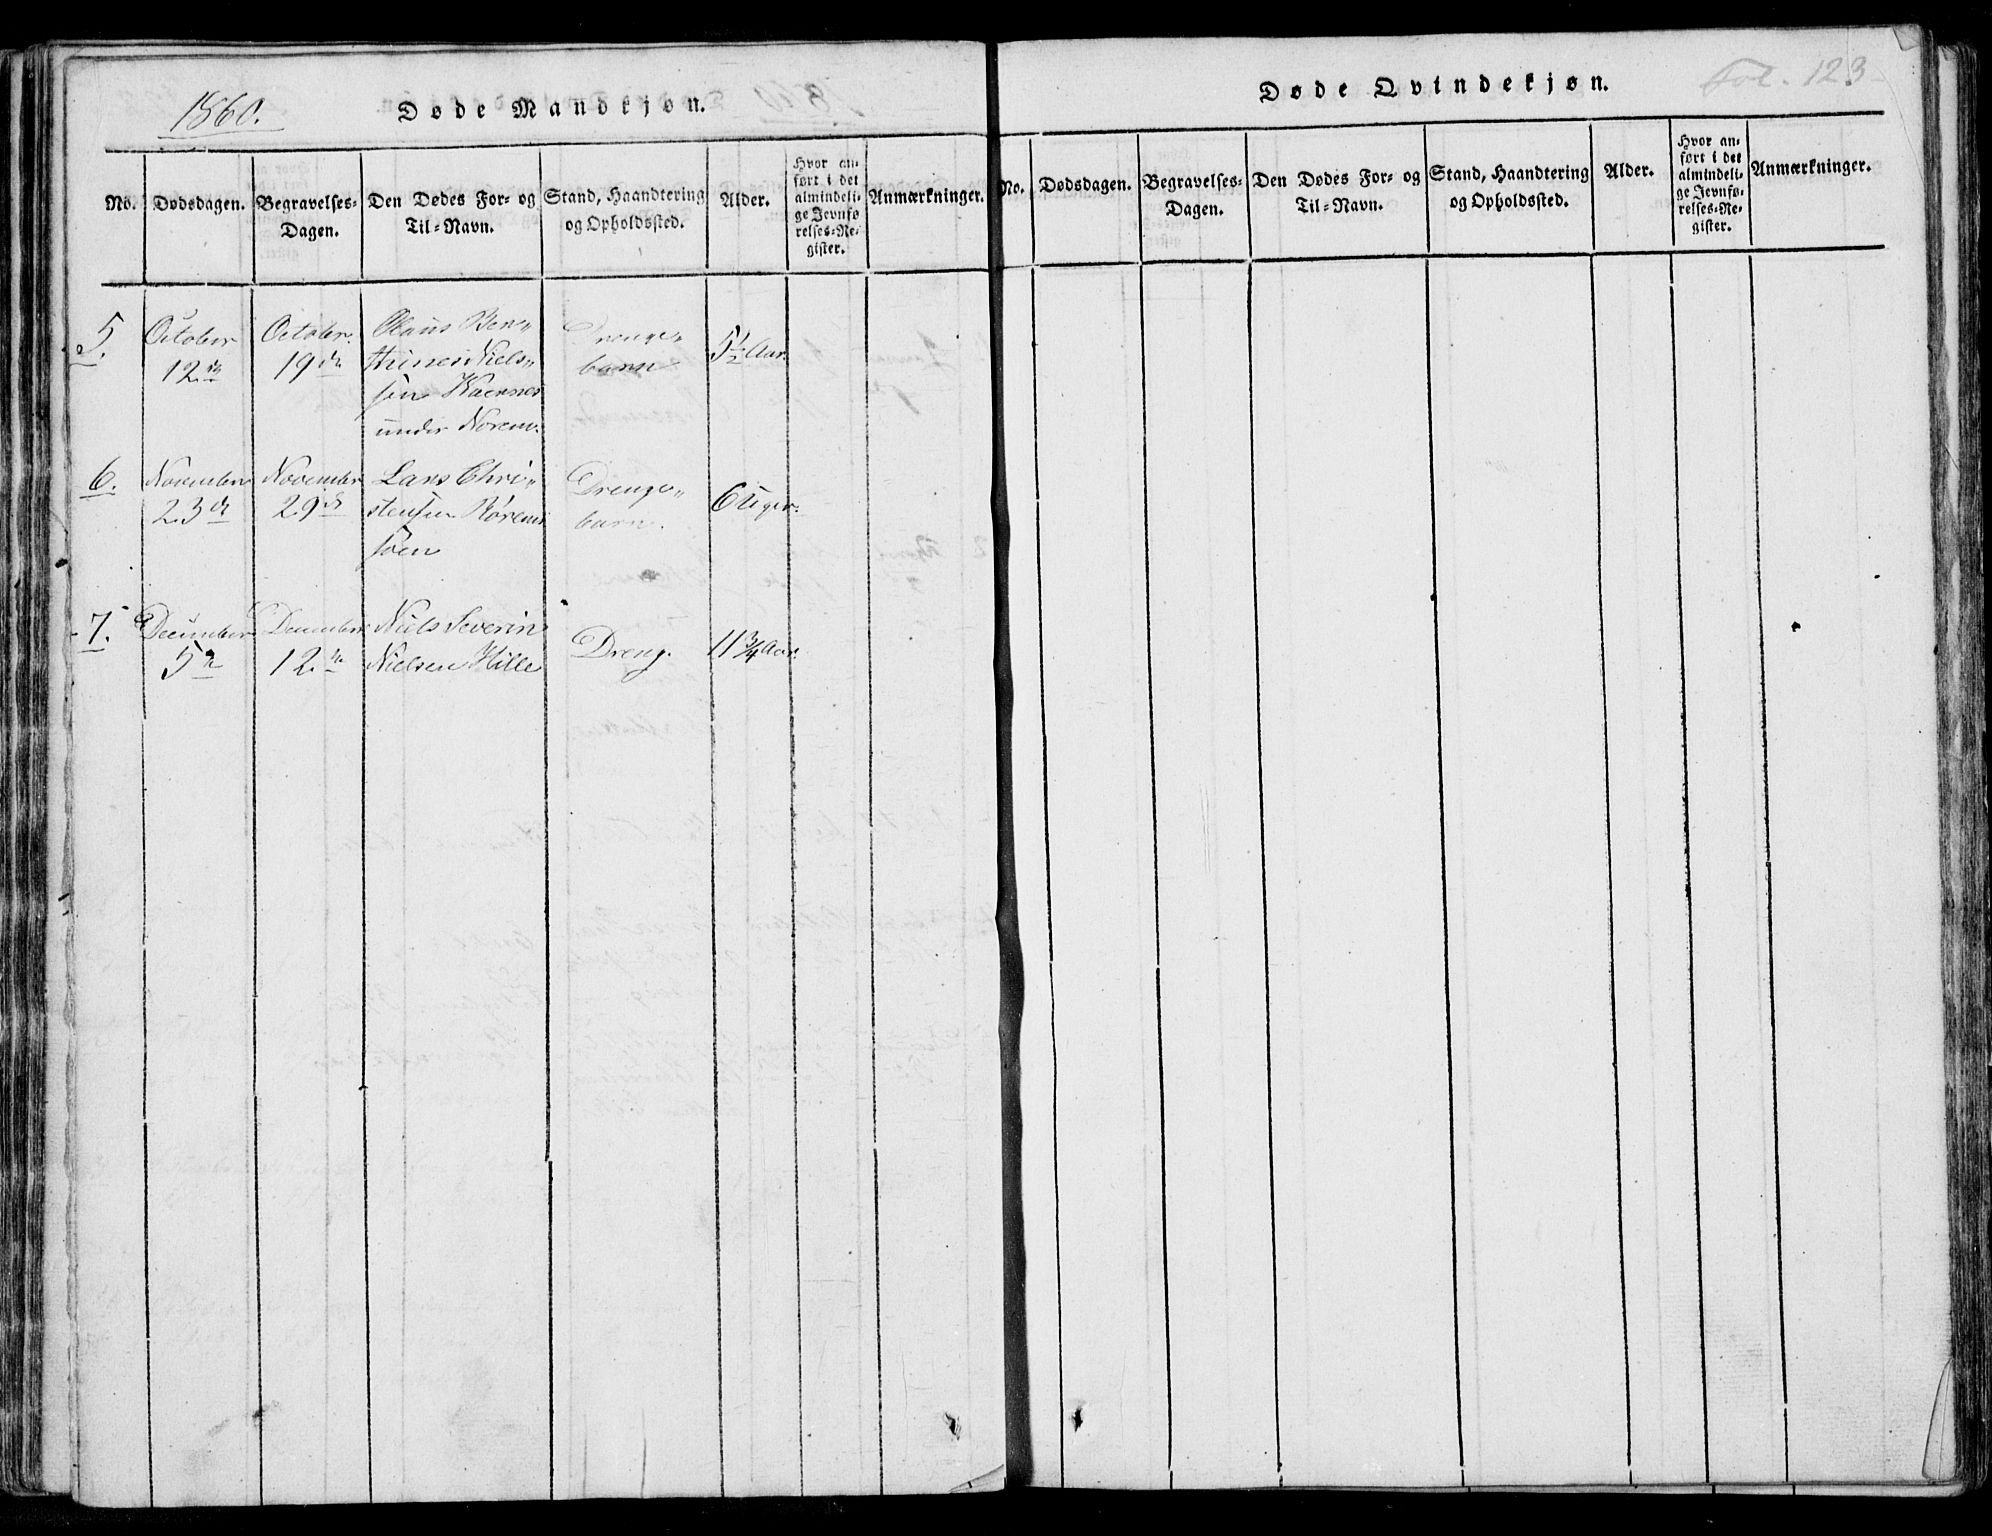 1860.
Døde Mandkjøn.
No.
Dødsdagen.
Begravelses-
Dagen.
Den Dødes For- og
Til-Navn.
Stand, Haandtering
og Opholdssted.
Alder.
Hvor an-
ført i det
almindeli-
ge Jevnfø-
relses-Re-
gister.
Anmærkninger.
5.
October
12te
October
19de
Olaus Ben„
thines Niels„
sen
under Norem.
Drenge„
barn
5½ Aar.
6.
November
23de
November
29de
Lars Chri„
stensen
søen
Drenge„
barn.
6 Uger.
7.
December
5te
December
12te
Niels Severin
Nielsen Hille
Dreng.
11¾ Aar.
Døde Qvindekjøn.
Fol. 123
No.
Dødsdagen.
Begravelses-
Dagen.
Den Dødes For- og
Til-Navn.
Stand, Haandtering
og Opholdssted.
Alder.
Hvor an-
ført i det
almindeli-
ge Jevnfø-
relses-Re-
gister.
Anmærkninger.